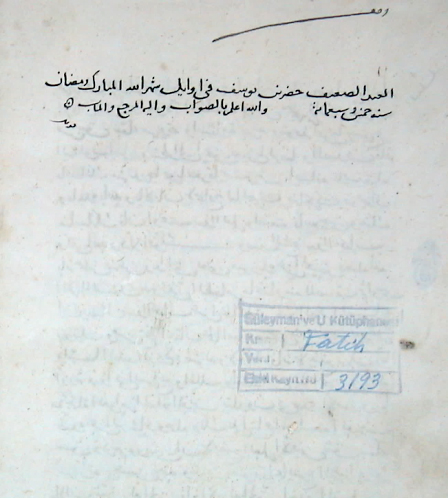 العبد الضعيف خضر بن يوسف فى اوايل شهر الله المبارك رمضان
سنة خمس وسبعمائة والله اعلم بالصواب واليه المرجع والمآب
Süleymaniye U Kütüphanesi
Fatih
Eski Kayıt No 3193